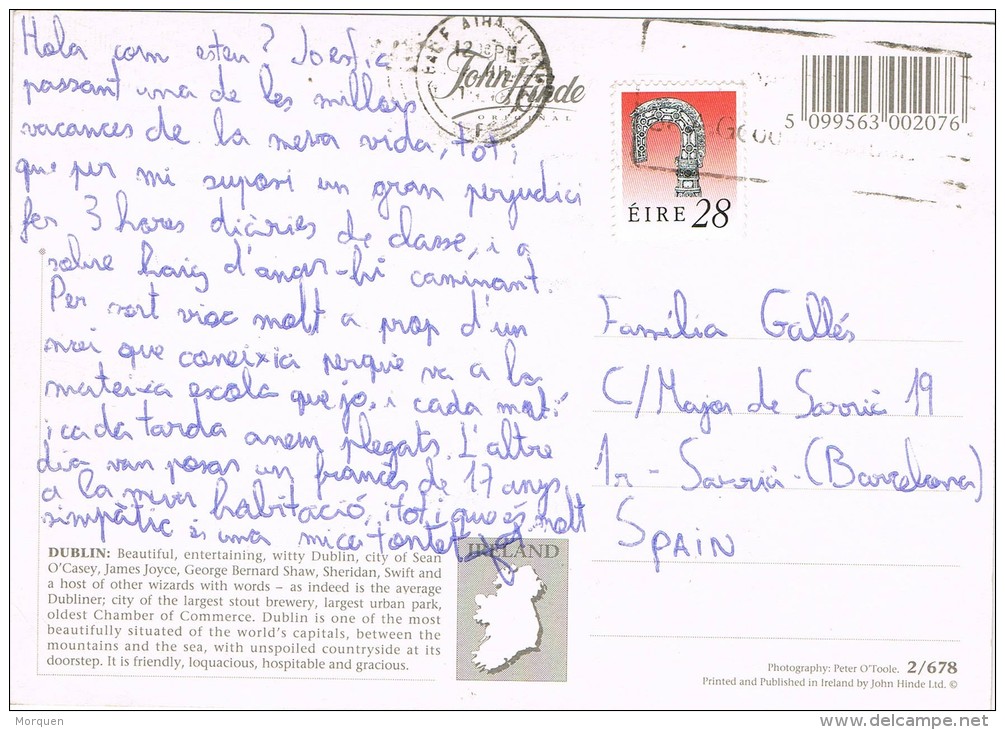 Hola com esteu? Jo estic
passant una de les millors
vacances de la meva vida, tot i
que per mi suposi un gran perjudici
fer 3 hores diàries de classe, i a
sobre haig d'anar-hi caminant.
Per sort visc molt a prop d'un
noi que coneixia perque va a la
mateixa escola que jo, i cada matí
i cada tarda anem plegats. L'altre
dia van posar un francès de 17 anys
a la meva habitació, i tot i que és molt
simpàtic és una mica tontet
John Hinde
ORIGINAL
12 PM
5 099563 002076
ÉIRE 28
Família Gallés
C/ Major de Sarrià 19
1r - Sarrià - (Barcelona)
SPAIN
DUBLIN: Beautiful, entertaining, witty Dublin, city of Sean
O'Casey, James Joyce, George Bernard Shaw, Sheridan, Swift and
a host of other wizards with words – as indeed is the average
Dubliner; city of the largest stout brewery, largest urban park,
oldest Chamber of Commerce. Dublin is one of the most
beautifully situated of the world's capitals, between the
mountains and the sea, with unspoiled countryside at its
doorstep. It is friendly, loquacious, hospitable and gracious.
IRELAND
Photography: Peter O'Toole. 2/678
Printed and Published in Ireland by John Hinde Ltd. ©
Morquen
www.delcampe.net